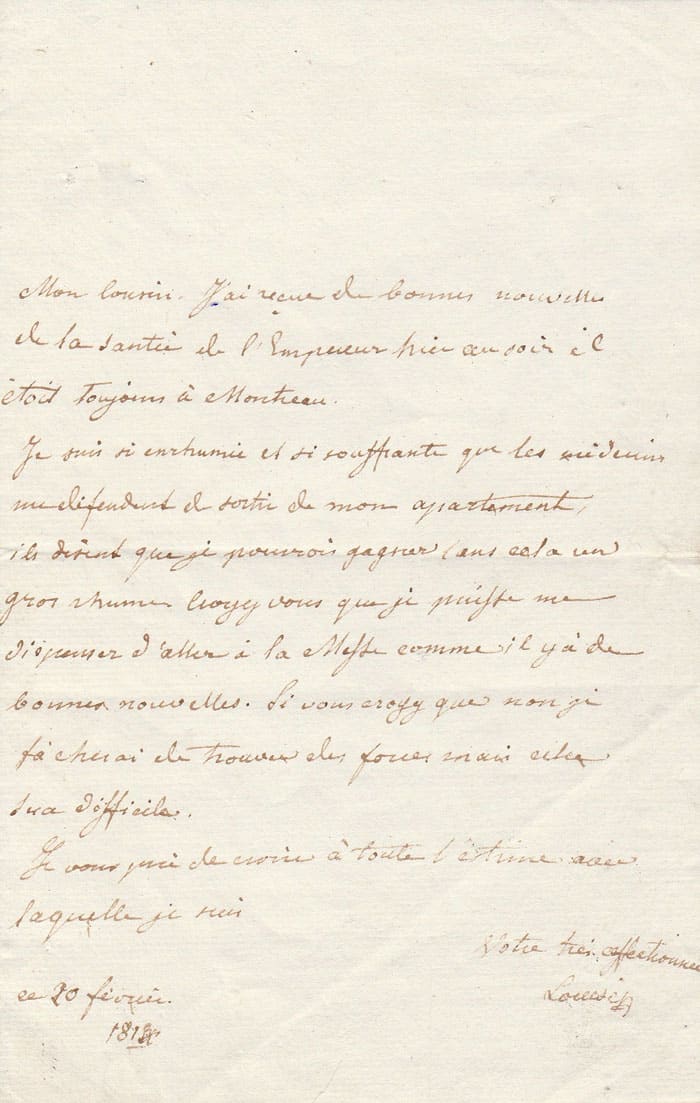 Mon Cousin. J'ai reçue de bonnes nouvelles
de la santée de l'Empereur hier au soir il
étoit toujours à Montreau.
Je suis si enrhumée et si souffrante que les médecins
me défendent de sortir de mon apartement,
ils disent que je pourrois gagner sans cela un
gros rhume. Croyez vous que je puisse me
dispenser d'aller à la Messe comme il y à de
bonnes nouvelles. Si vous croyez que non je
tâcherai de trouver des forces mais cela
sera difficile.
Je vous prie de croire à toute l'estime avec
laquelle je suis
Votre très affectionnée
Louise
ce 20 février.
1814